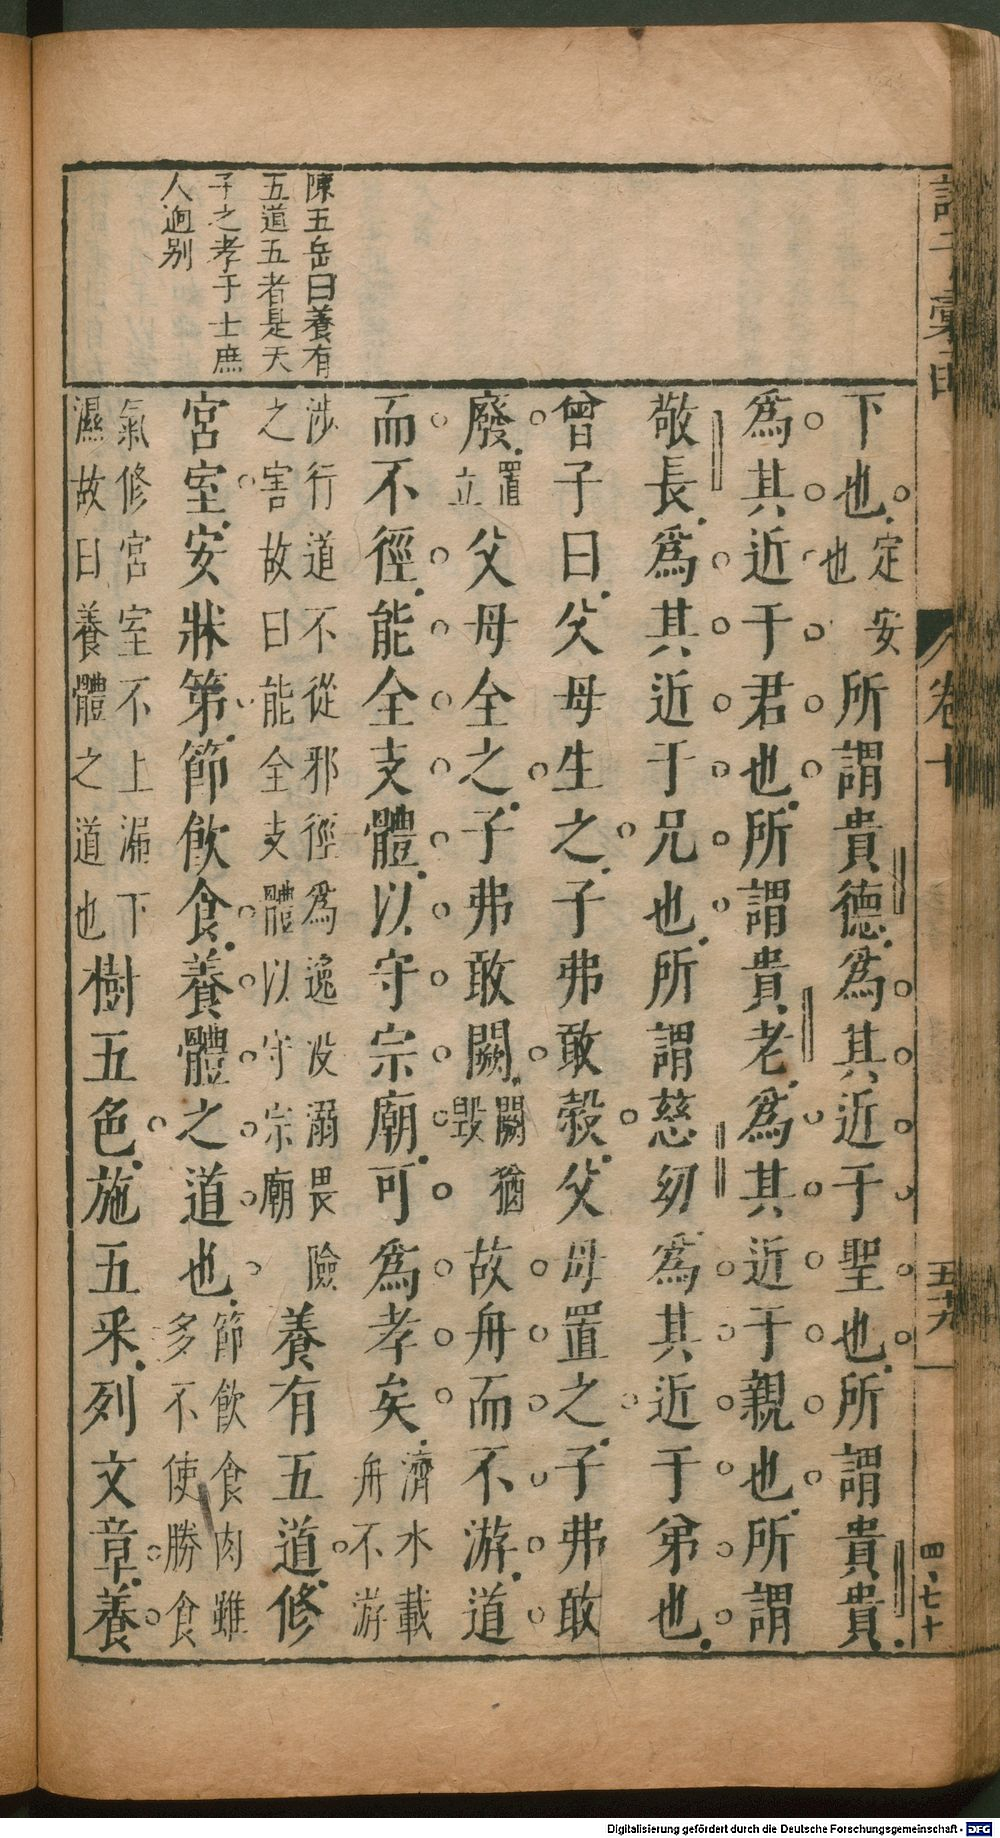 陳五岳曰養有
五道五者是天
子之孝于士庶
人迥别
下也定安也所謂貴德爲其近于聖也所謂貴貴
爲其近于君也所謂貴老爲其近于親也所謂
敬長爲其近于兄也所謂慈幼爲其近于弟也
曾子曰父母生之子弗敢殺父母置之子弗敢
廢置立父母全之子弗敢闕闕猶毀故舟而不游道
而不徑能全支體以守宗廟可爲孝矣濟水載舟不游
涉行道不從邪徑爲逸没溺畏險之害故曰能全支體以守宗廟養有五道修
宮室安牀第節飲食養體之道也節飲食肉雖多不使勝食
氣修宮室不上漏下濕故曰養體之道也樹五色施五采列文章養
卷十
五十九
四七十
Digitalisierung gefördert durch die Deutsche Forschungsgemeinschaft - DFG